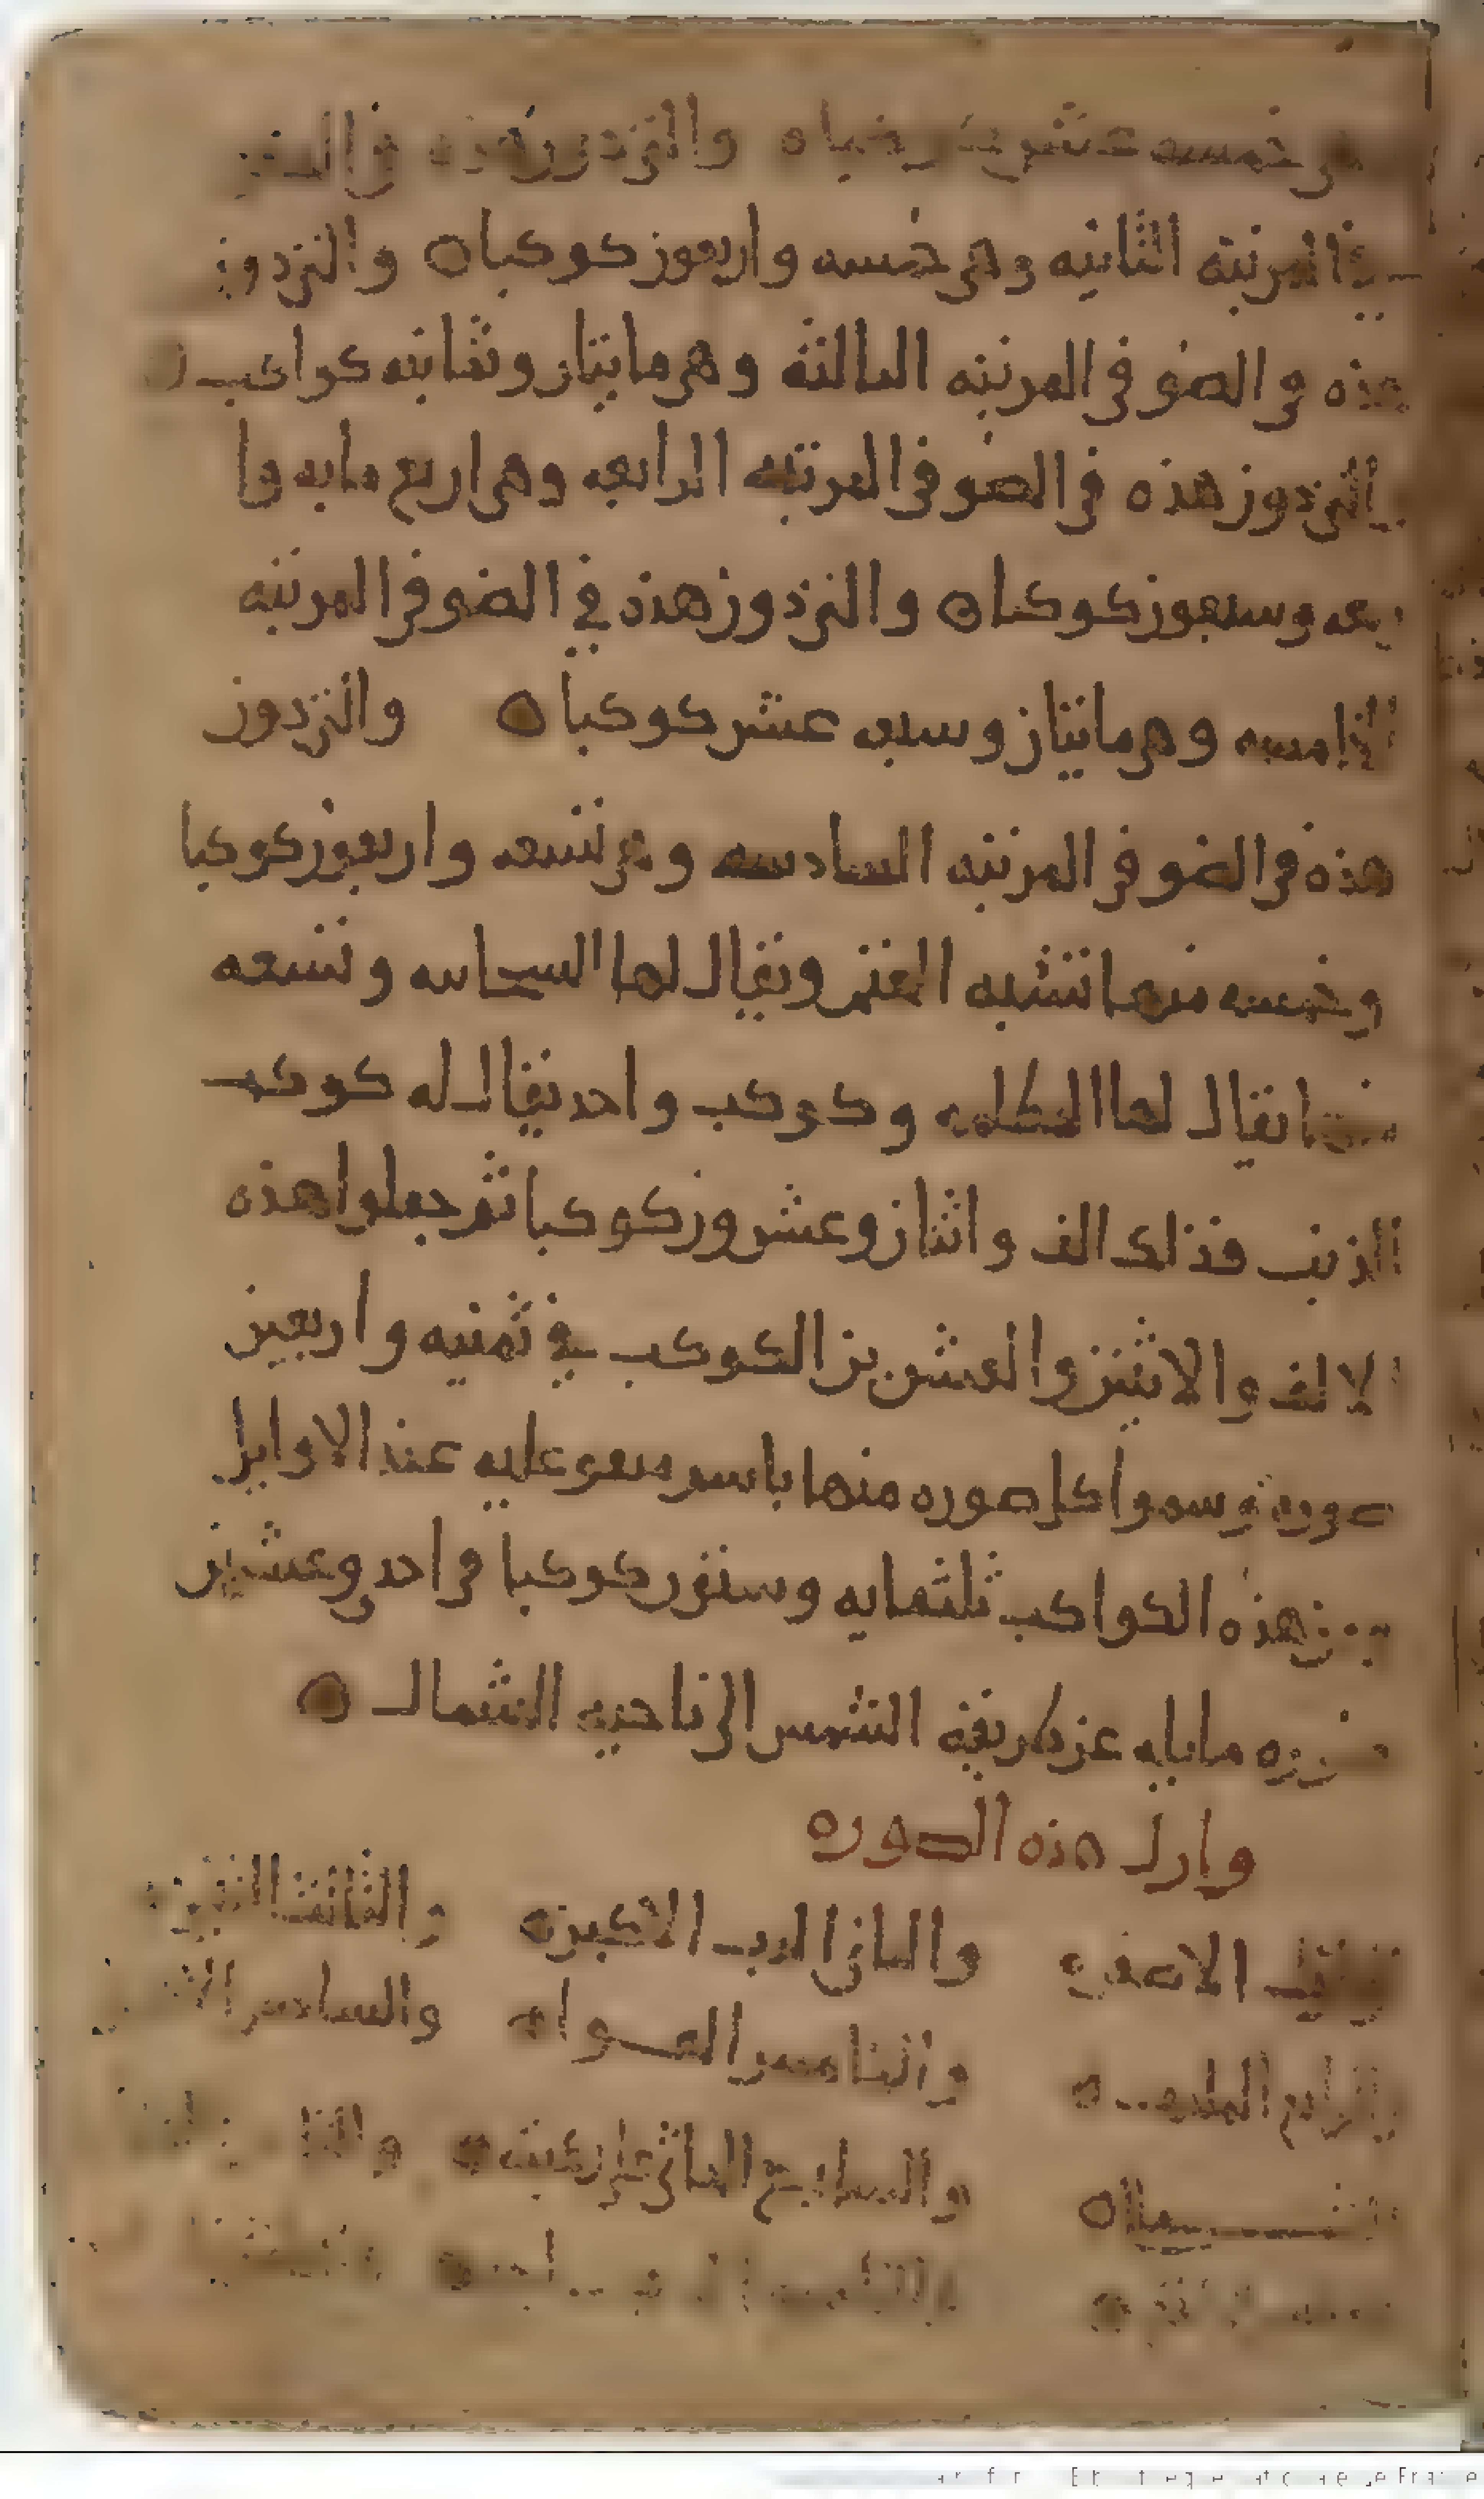 خمسه عشر والتى دون هذه فى الضو
فى المرتبه الثانيه وهى خمسه واربعون كوكبا ه والتى دون
هذه فى الضو فى المرتبه الثالثه وهى مايتان وثمانيه كواكب ه
والتى دون هذه فى الضو فى المرتبه الرابعه وهى اربع مايه وا
ربعه وسبعون كوكبا ه والتى دون هذه في الضو فى المرتبه
الخامسه وهى مايتان وسبعه عشر كوكبا ه والتى دون
هذه فى الضو فى المرتبه السادسه وهى تسعه واربعون كوكبا
وخمسه منها تشبه الغيم ويقال لها السحابيه وتسعه
منها يقال لها المظلمه وكوكب واحد يقال له كوكب
الذنب فذلك الف واثنان وعشرون كوكبا ثم جعلوا هذه
الالف والاثنين والعشرين الكوكب في ثمنيه واربعين
صوره وسموا كل صوره منها باسم منعو عليه عند الاوايل
من هذه الكواكب ثلثمايه وستون كوكبا فى احد وعشرين
صوره مايله عن طريقه الشمس الى ناحيه الشمال ه
واول هذه الصوره
الدب الاصغر ه والثانى الدب الاكبر ه والثالث التنين
والرابع الملتهب ه والخامس العوا ه والسادس
الشمالى ه والسابع الجاثى على ركبته ه